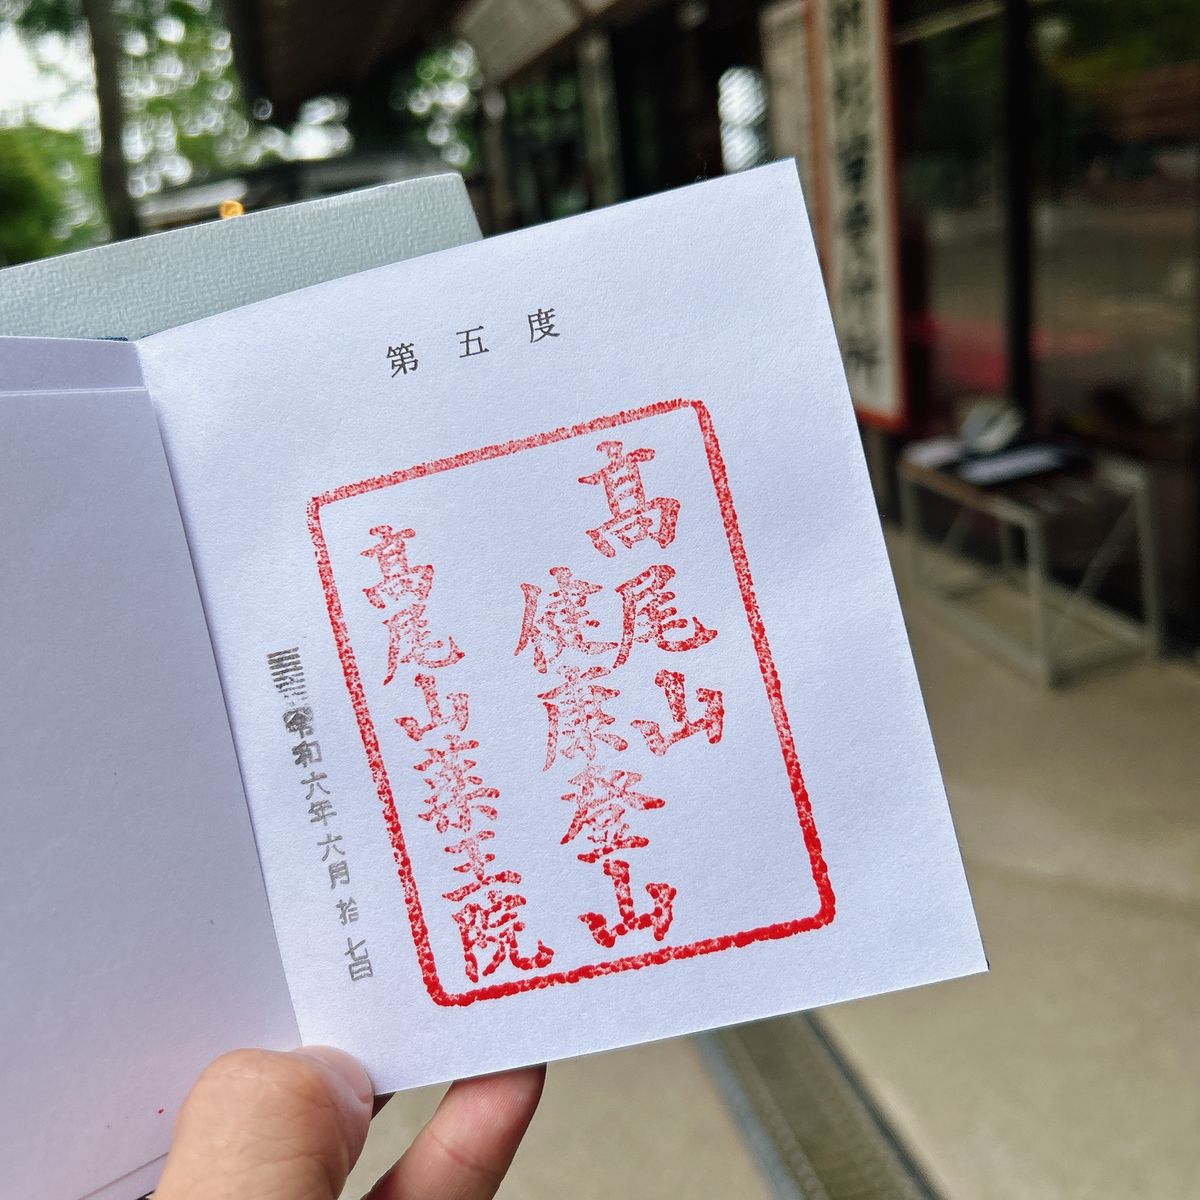 第五度
髙尾山
健康登山
髙尾山薬王院
令和六年六月拾七日